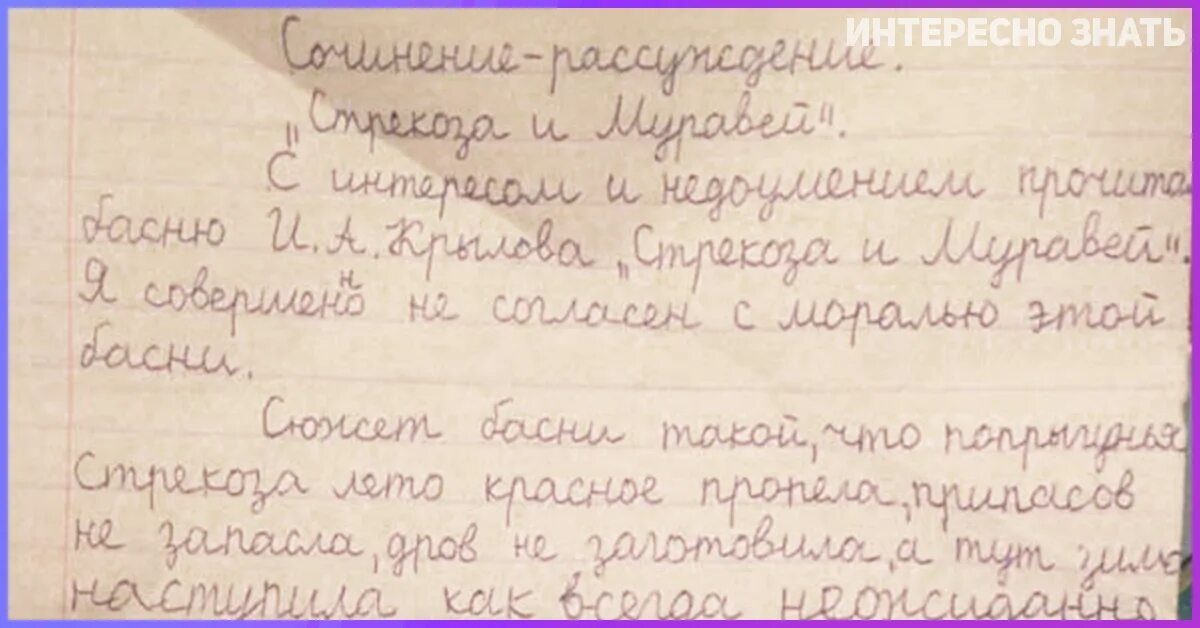 ИНТЕРЕСНО ЗНАТЬ
Сочинение-рассуждение.
„Стрекоза и Муравей".
С интересом и недоумением прочитал
басню И.А.Крылова „Стрекоза и Муравей".
Я совершенно не согласен с моралью этой
басни.
Сюжет басни такой, что попрыгунья
Стрекоза лето красное пропела, припасов
не запасла, дров не заготовила, а тут зима
наступила как всегда неожиданно